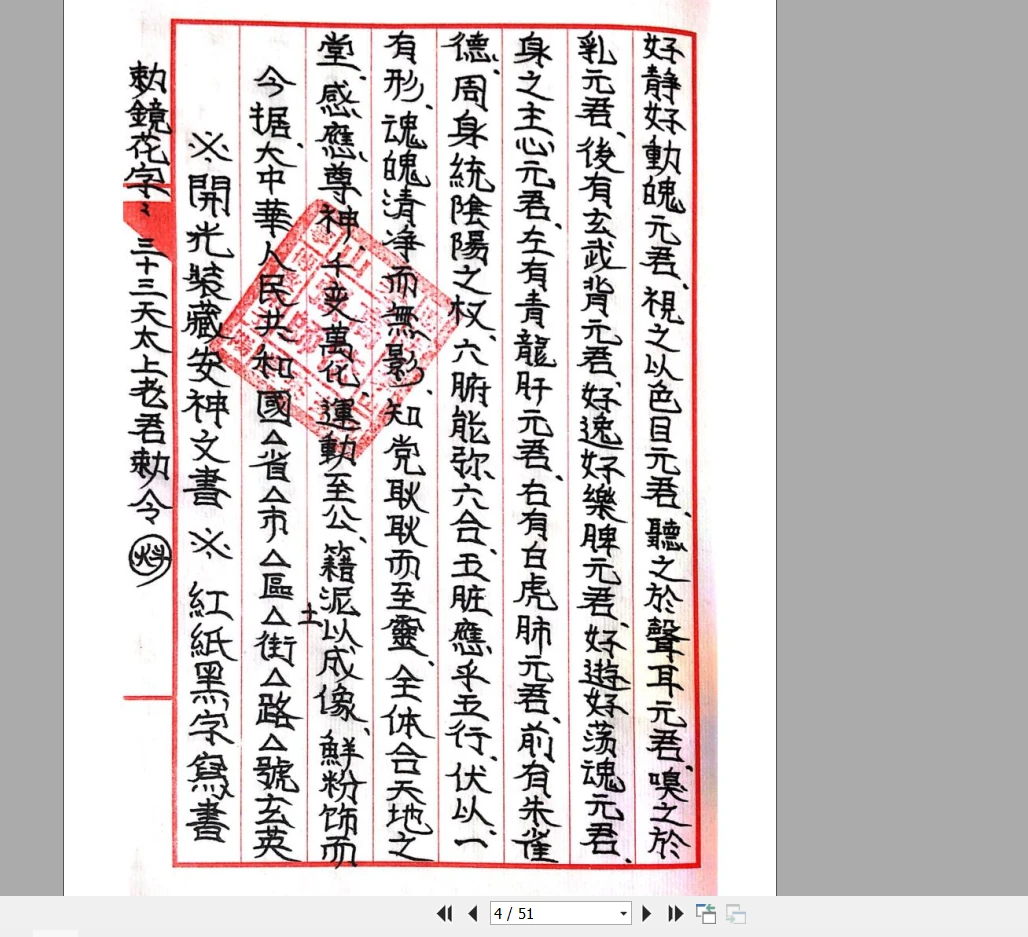 好靜好動魄元君、視之以色目元君、聽之於聲耳元君、嗅之於
乳元君、後有玄武背元君、好逸好樂脾元君、好遊好荡魂元君、
身之主心元君、左有青龍肝元君、右有白虎肺元君、前有朱雀
德、周身統陰陽之权、六腑能弥六合、五脏應乎五行、伏以、一
有形、魂魄清净而無影、知党耿耿而至靈、全体合天地之
堂、感應尊神、千变萬化、運動至公、籍泥土以成像、鮮粉饰而
今据、大中華人民共和國△省△市△區△街△路△號玄英
※開光装藏安神文書※ 紅紙黑字寫書
勅鏡花字：三十三天太上老君勅令
4 / 51